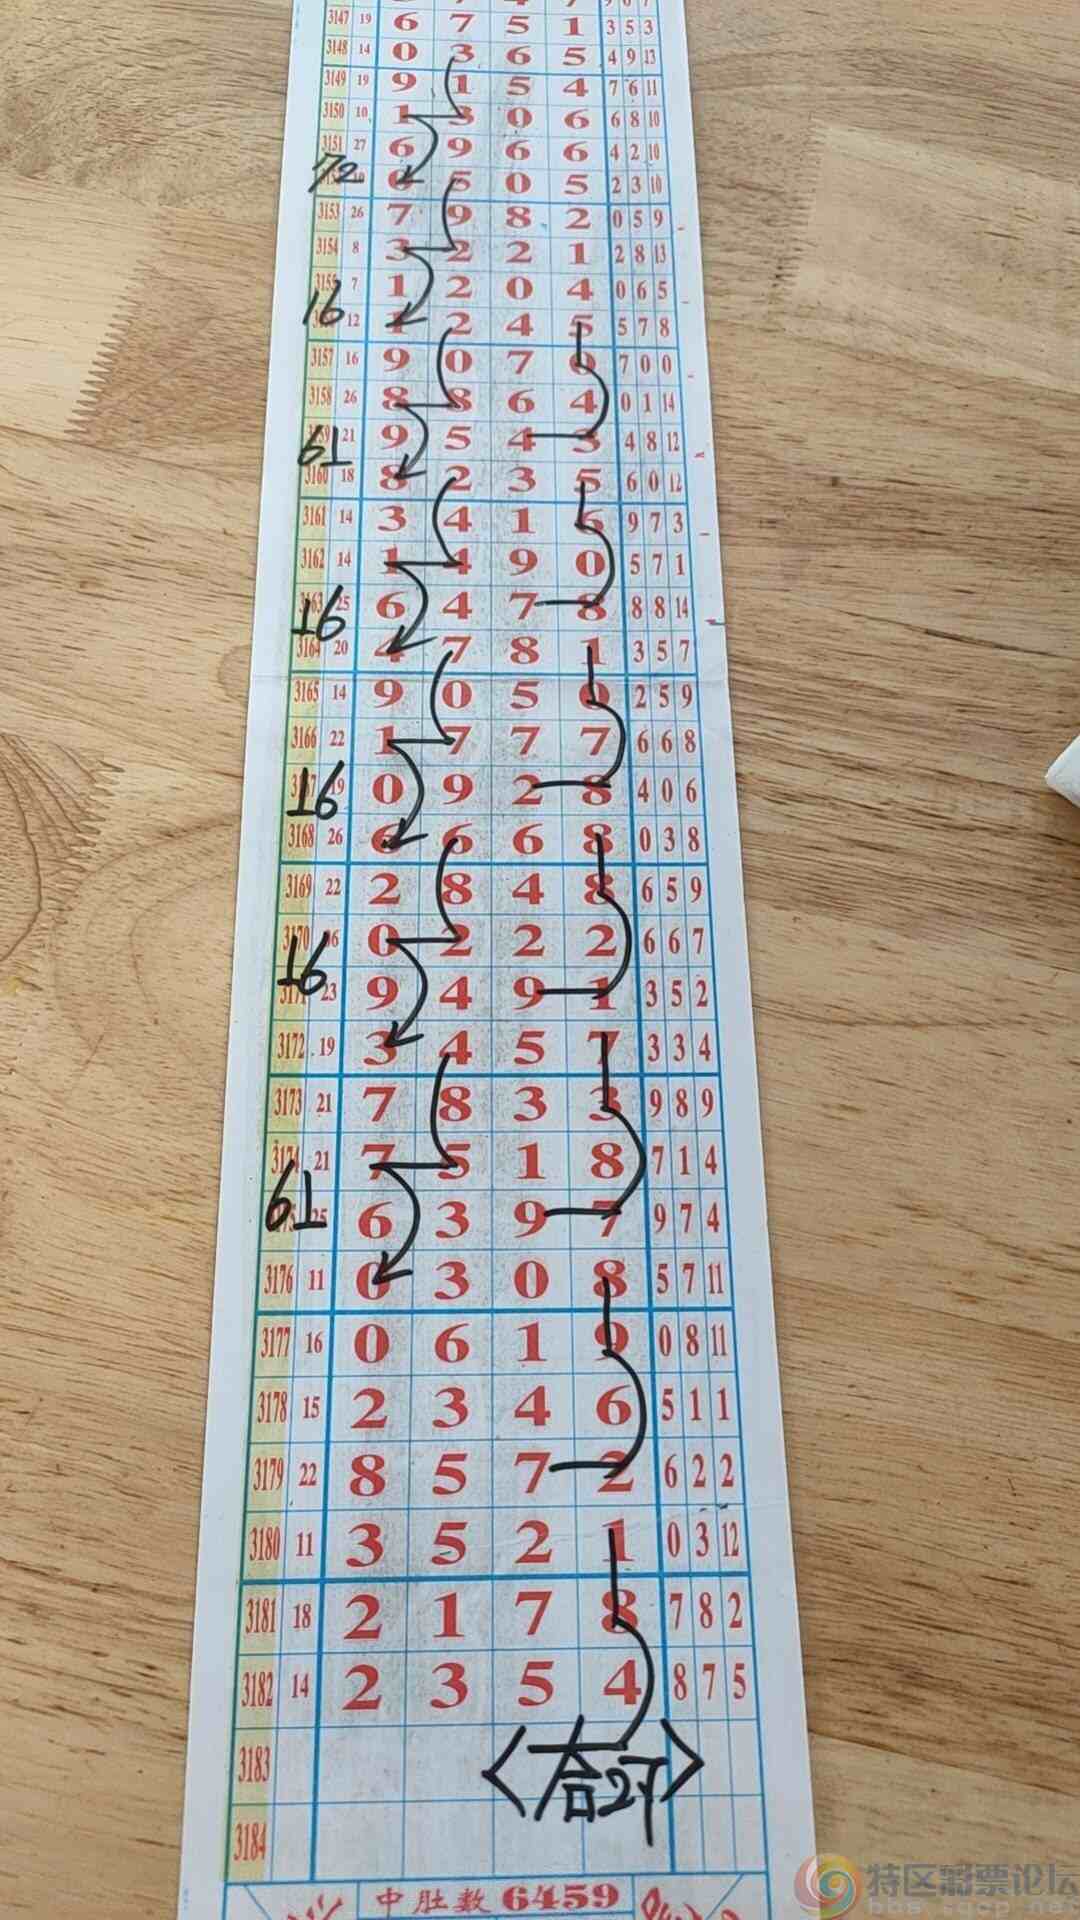 3147 19 6 7 5 1 3 5 3
3148 14 0 3 6 5 4 9 13
3149 19 9 1 5 4 7 6 11
3150 10 1 3 0 6 6 8 10
3151 27 6 9 6 6 4 2 10
72 5 0 5 2 3 10
3153 26 7 9 8 2 0 5 9
3154 8 3 2 2 1 2 8 13
3155 7 1 2 0 4 0 6 5
16 12 1 2 4 5 5 7 8
3157 16 9 0 7 0 7 0 0
3158 26 8 8 6 4 0 1 14
61 21 9 5 4 3 4 8 12
3160 18 8 2 3 5 6 0 12
3161 14 3 4 1 6 9 7 3
3162 14 1 4 9 0 5 7 1
16 25 6 4 7 8 8 8 14
3164 20 4 7 8 1 3 5 7
3165 14 9 0 5 0 2 5 9
3166 22 1 7 7 7 6 6 8
16 19 0 9 2 8 4 0 6
3168 26 6 6 6 8 0 3 8
3169 22 2 8 4 8 6 5 9
3170 0 2 2 2 6 6 7
16
3171 23 9 4 9 1 3 5 2
3172 19 3 4 5 7 3 3 4
3173 21 7 8 3 3 9 8 9
3174 21 7 5 1 8 7 1 4
61 25 6 3 9 7 9 7 4
3176 11 0 3 0 8 5 7 11
3177 16 0 6 1 9 0 8 11
3178 15 2 3 4 6 5 1 1
3179 22 8 5 7 2 6 2 2
3180 11 3 5 2 1 0 3 12
3181 18 2 1 7 8 7 8 2
3182 14 2 3 5 4 8 7 5
3183 〈合27〉
3184
中肚数 6459
特区彩票论坛
bbs.tqcp.net